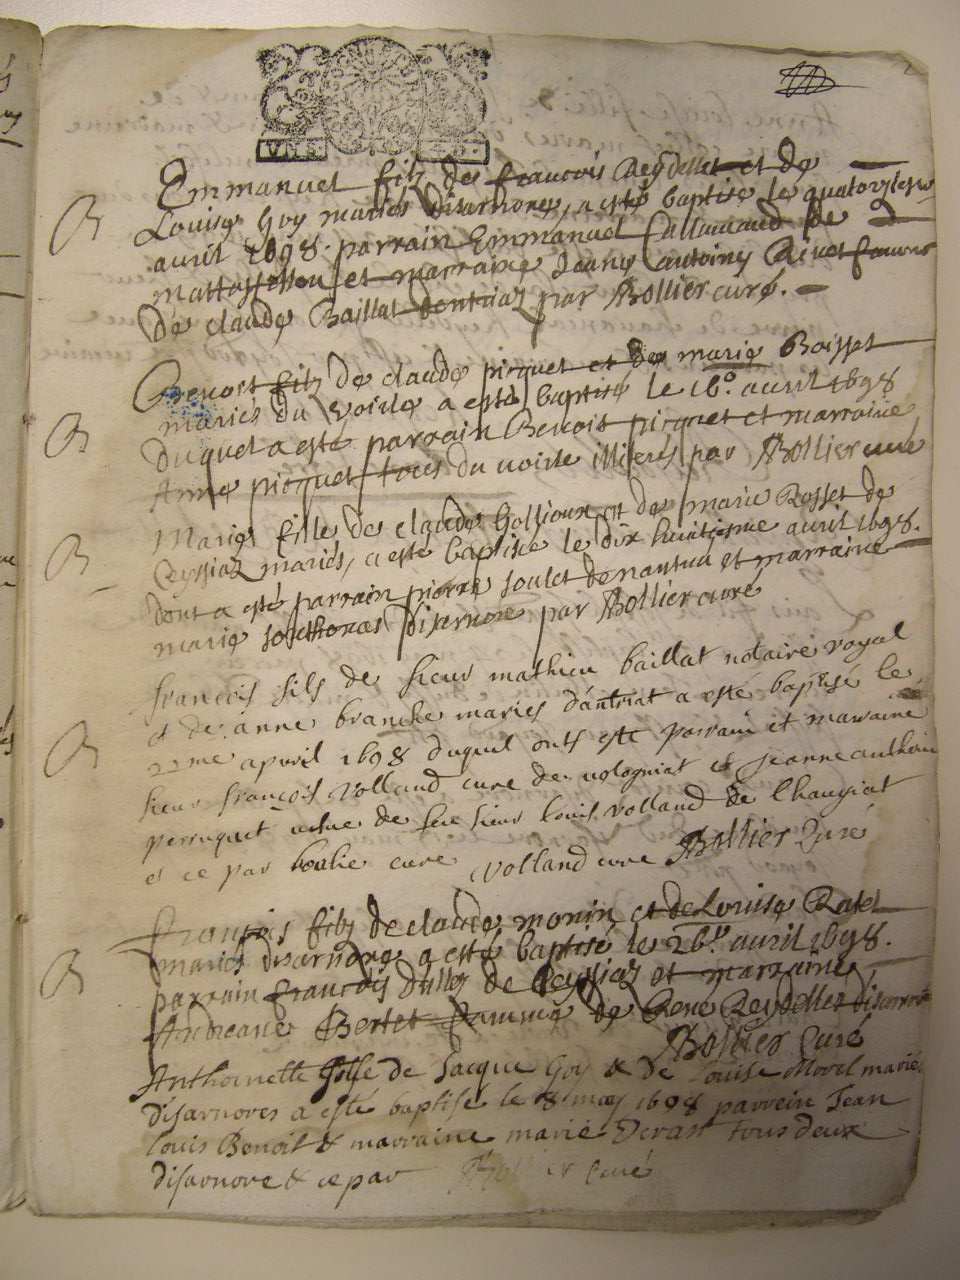 B
Emmanuel filz de françois Reydellet et de
Louise Goy mariés disarnore, a esté baptise le quatorziesme
avril 1698. parrain Emmanuel Callamard de
mattafellon et marraine Jeane Antoine Rivet femme
de claude Baillat dentriaz par JBollier curé.
B
Benoist filz de claude picquet et de marie Boisset
mariés du voirle a esté baptisé le 16e avril 1698
duquel a esté parrain Benoit picquet et marraine
Anne picquet tous du voirle illiterés par JBollier curé
B
Marie fille de claude Gollioux et de marie Rosset de
Ceyssiaz mariés, a esté baptisée le dix huitiesme avril 1698.
dont a esté parrain pierre soulet de nantua et marraine
marie disarnore par JBollier curé
B
françois fils de sieur mathieu baillat notaire royal
et de anne branche maries dántriat a esté baptisé le
22me apvril 1698 duquel onts este parrain et marraine
sieur françois volland cure de vologniat et Jeanne anthoin
perruquet vefve de feu sieur louis volland de lhaugiat
e ce par boulie cure volland cure JBollier Curé
B
françois filz de claude monin et de Louise Ratel
mariés disarnore a esté baptisé le 26e avril 1698.
parrain françois dully de Ceyssiaz et marraine
Andreane Bertet femme de Rene Reydellet disarnore
JBollier Curé
Anthoinette fille de Jacque Goy & de Louise Morel mariés
disarnores a esté baptisée le 8 may 1698 parrein Jean
louis Benoit & marraine marie tous deux
disarnore & ce par JBollier curé